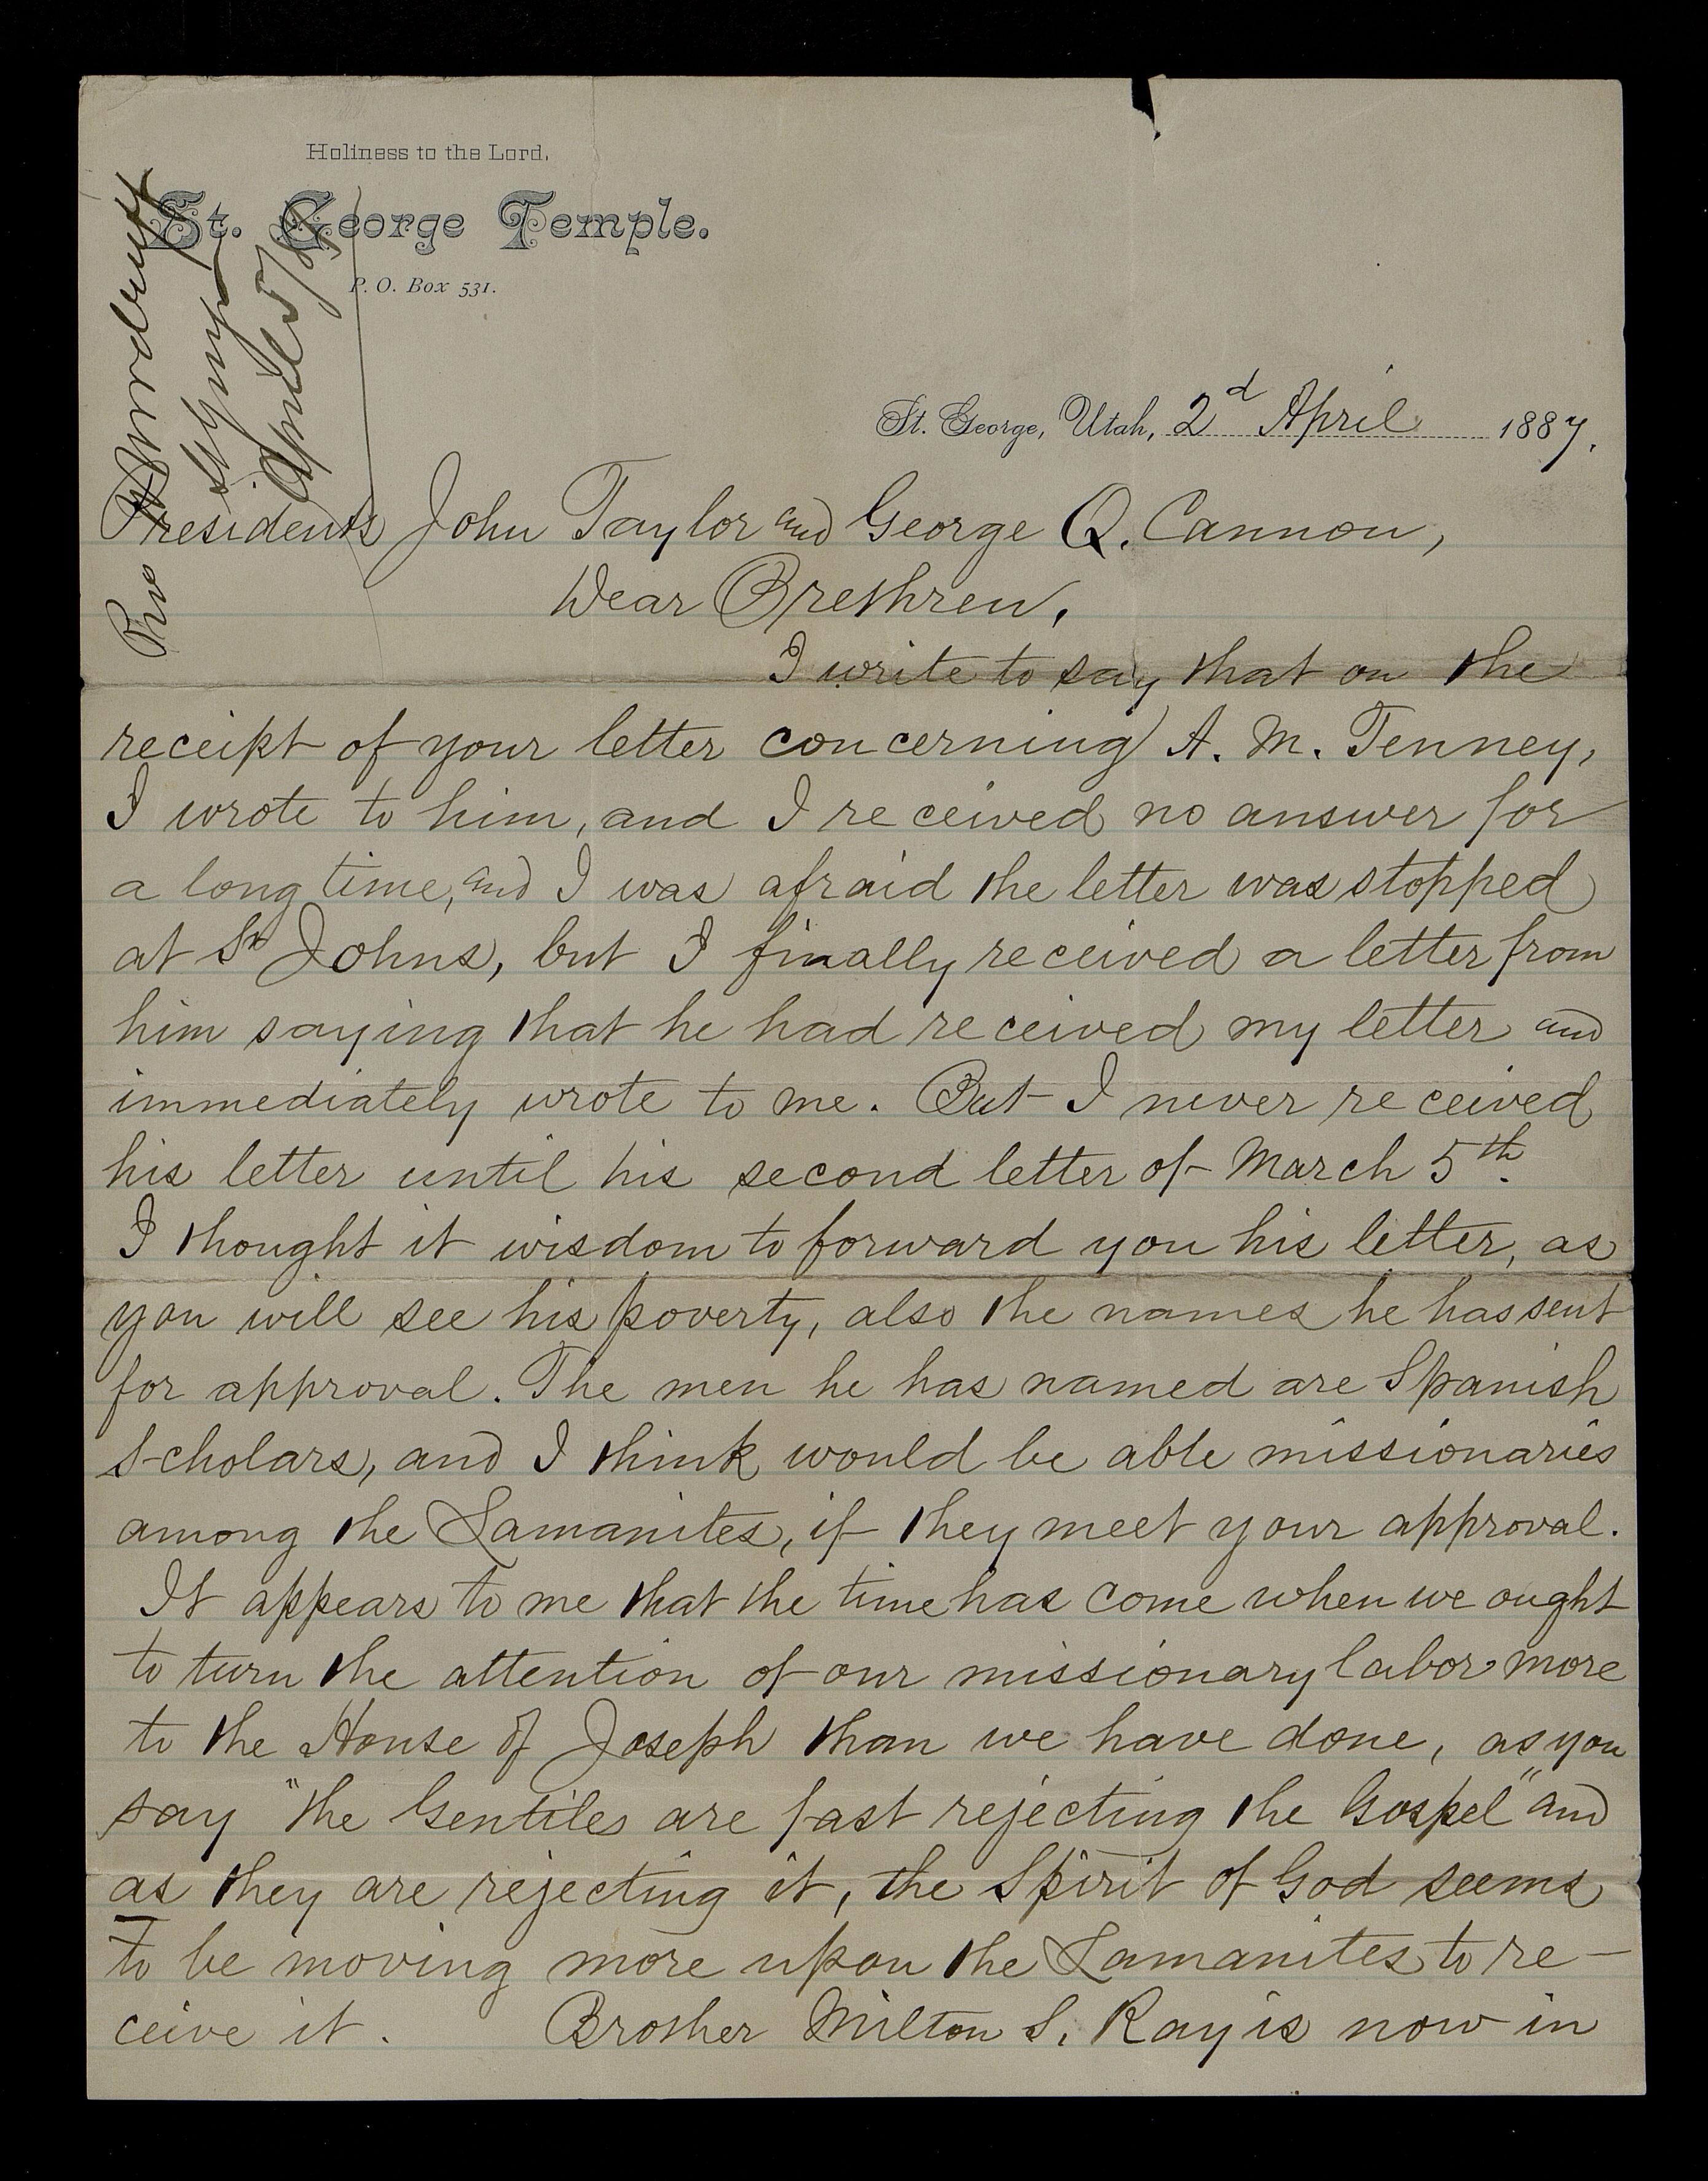 Holiness to the Lord.
St. George Temple.
P. O. Box 531.
Pres W Woodruff
April 5/87
St. George, Utah, 2d April 1887.
Presidents John Taylor and George Q. Cannon,
Dear Brethren,
I write to say that on the
receipt of your letter concerning A. M. Tenney,
I wrote to him, and I received no answer for
a long time, and I was afraid the letter was stopped
at St Johns, but I finally received a letter from
him saying that he had received my letter and
immediately wrote to me. But I never received
his letter until his second letter of March 5th.
I thought it wisdom to forward you his letter, as
you will see his poverty, also the names he has sent
for approval. The men he has named are Spanish
Scholars, and I think would be able missionaries
among the Lamanites, if they meet your approval.
It appears to me that the time has come when we ought
to turn the attention of our missionary labor more
to the House of Joseph than we have done, as you
say "the Gentiles are fast rejecting the Gospel" and
as they are rejecting it, the Spirit of God seems
to be moving more upon the Lamanites to re-
ceive it. Brother Milton S. Ray is now in